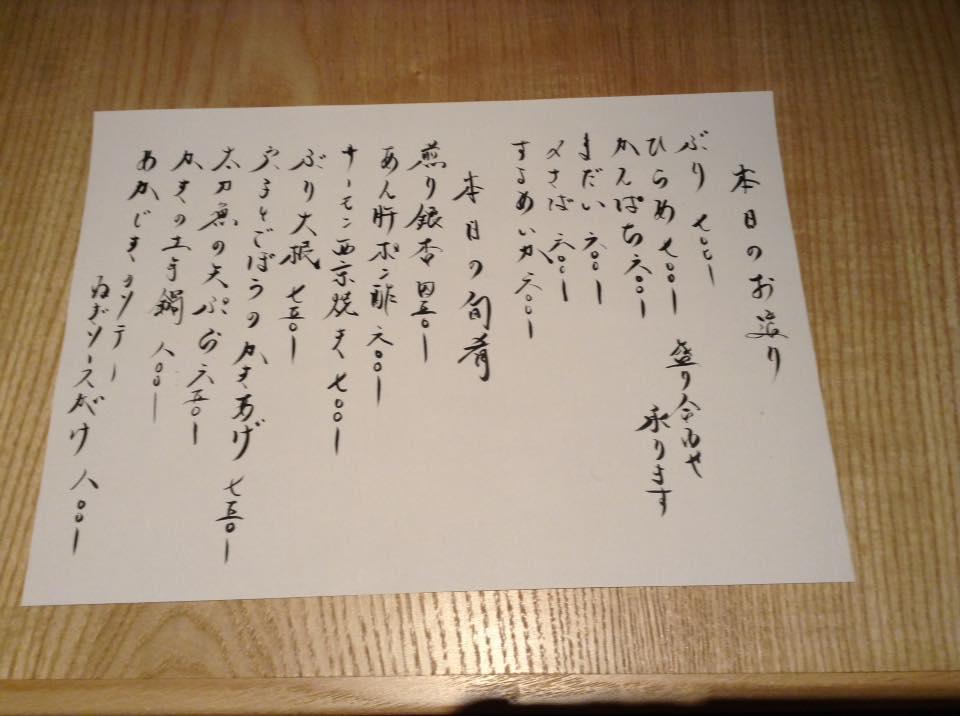 本日のお造り
ぶり 七〇〇ー
ひらめ 七〇〇ー
盛り合わせ
承ります
かんぱち 六〇〇ー
まだい 六〇〇ー
〆さば 六〇〇ー
するめいか 六〇〇ー
本日の旬肴
煎り銀杏 四五〇ー
あん肝ポン酢 六〇〇ー
サーモン西京焼き 七〇〇ー
ぶり大根 七五〇ー
穴子とごぼうのかきあげ 七五〇ー
太刀魚の天ぷら 六五〇ー
かきの土手鍋 八〇〇ー
あかじきソテー
ねぎソースがけ 八〇〇ー